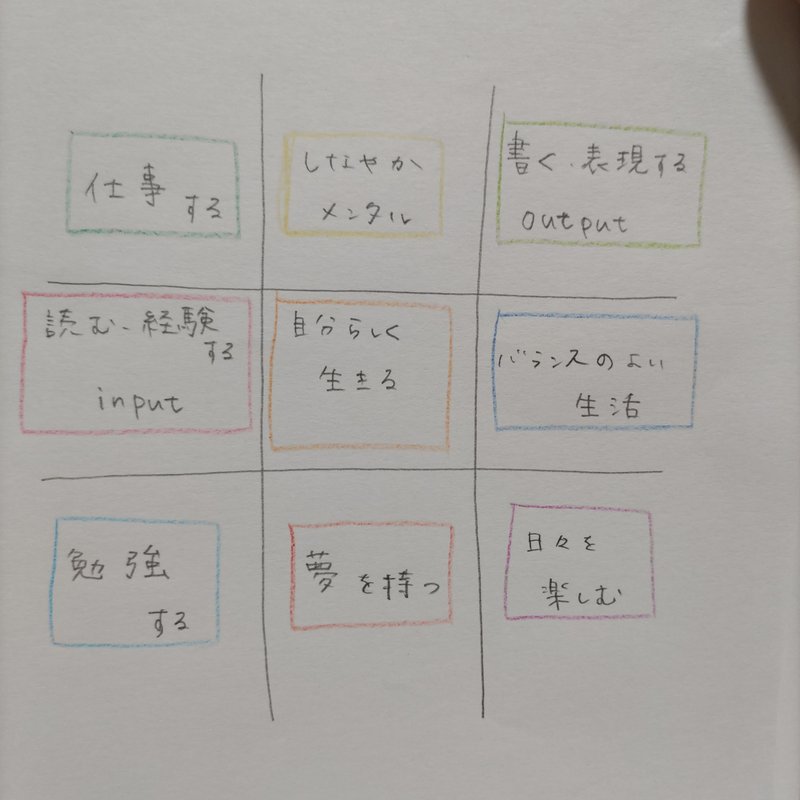 仕事
する
しなやか
メンタル
書く、表現する
output
読む、経験
する
input
自分らしく
生きる
バランスのよい
生活
勉強
する
夢を持つ
日々を
楽しむ